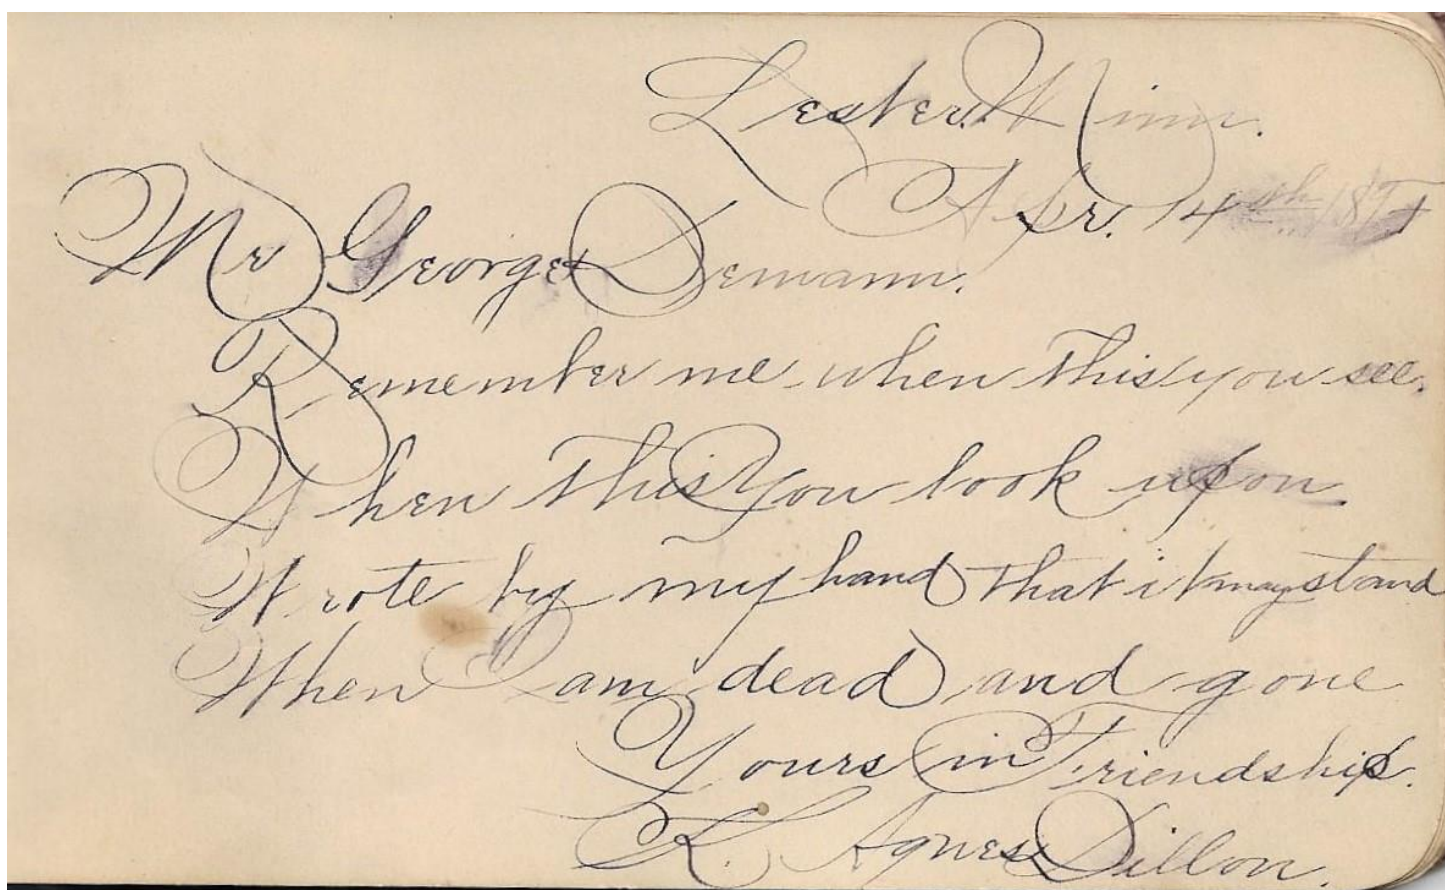 Lester. Minn.
Apr. 14th
Mr George Demann.
Remember me when this you see.
When this You look upon
Wrote by my hand that it may stand
When I am dead and gone
Yours in Friendship.
K. Agnes Dillon.